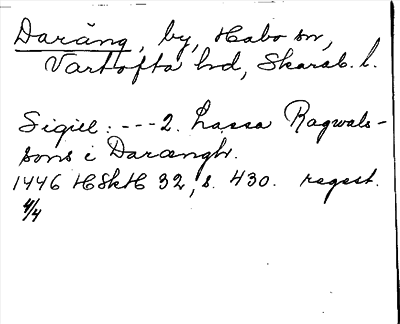 Daräng, by, Habo sn,
Vartofta hd, Skarab. l.
Sigill: --- 2. Lassa Ragwals-
sons i Darængh.
1446 HSkH 32, s. 430. regest.
4/4